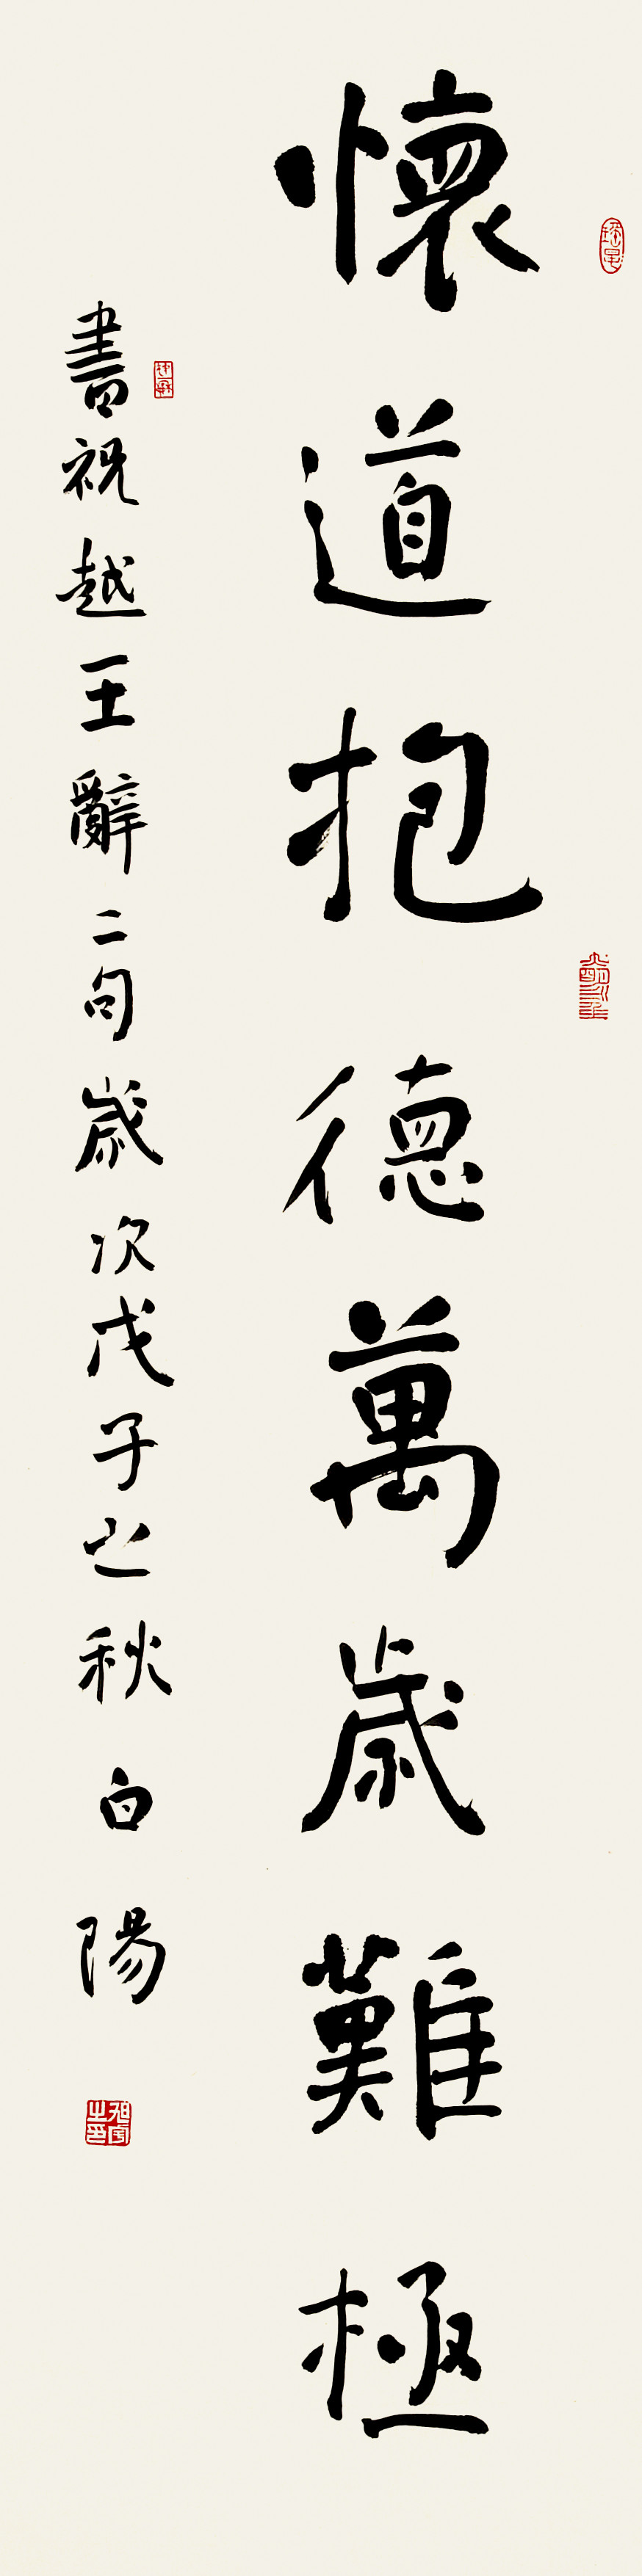 懷道抱德萬歲難極
書祝越王辭二句歲次戊子之秋白陽